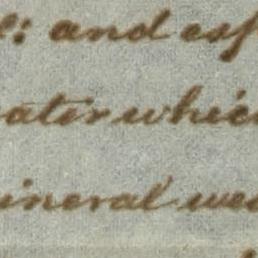 : and esp
ater which
ineral wea